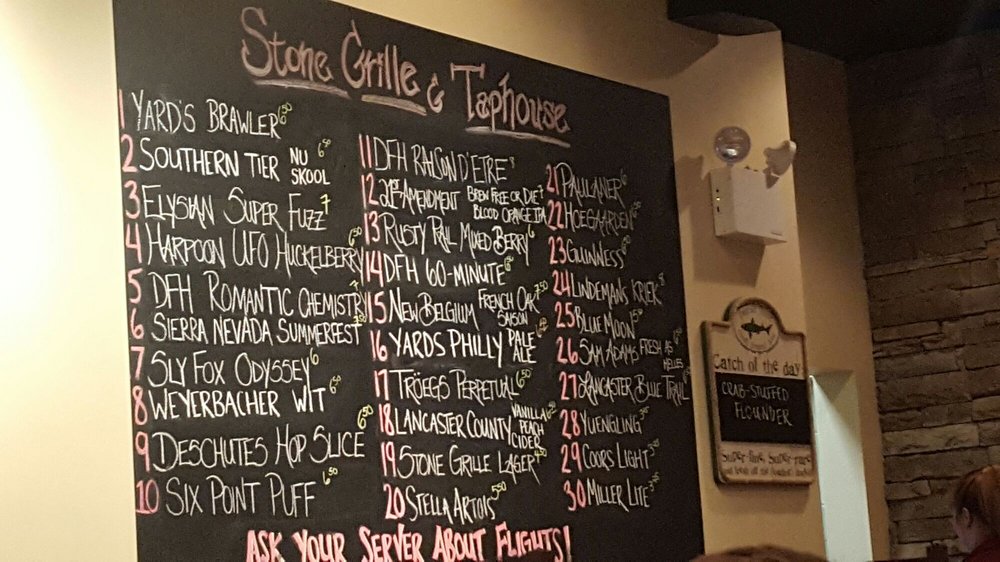 Stone Grille & Taphouse
1 YARD'S BRAWLER 6.50
2 SOUTHERN TIER NU SKOOL 6.50
3 ELYSIAN SUPER FUZZ 7
4 HARPOON UFO HUCKELBERRY 6.50
5 DFH ROMANTIC CHEMISTRY 7
6 SIERRA NEVADA SUMMERFEST
7 SLY FOX ODYSSEY 6
8 WEYERBACHER WIT 6.50
9 DESCHUTES HOP SLICE 6.50
10 SIX POINT PUFF 6.50
11 DFH RAISON D'ETRE 8
12 21ST AMENDMENT BREW FREE OR DIE 7
BLOOD ORANGE IPA
13 RUSTY RAIL MIXED BERRY 6
14 DFH 60-MINUTE 6.50
15 NEW BELGIUM FRENCH OAK SAISON 7.50
16 YARDS PHILLY PALE ALE 6.50
17 TRÖEGS PERPETUAL 6.50
18 LANCASTER COUNTY VANILLA PEACH CIDER 6.50
19 STONE GRILLE LAGER 4.50
20 STELLA ARTOIS 5.50
21 PAULANER 6
22 HOEGAARDEN 6.50
23 GUINNESS 6
24 LINDEMANS KRIEK 8
25 BLUE MOON
26 SAM ADAMS FRESH AS HELLES
27 LANCASTER BLUE TRAIL
28 YUENGLING
29 COORS LIGHT
30 MILLER LITE
ASK YOUR SERVER ABOUT FLIGHTS!
Catch of the day
CRAB-STUFFED
FLOUNDER
Super-fine, Super-rare